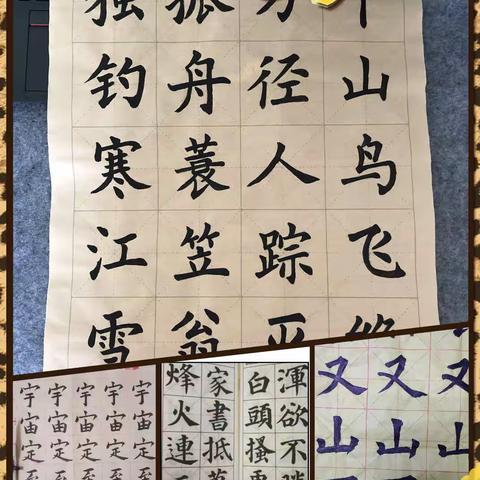 千山鸟飞绝
万径人踪
孤舟蓑笠翁
独钓寒江雪
宇宙定至
宇宙定至
宇宙定至
宇宙定至
宇宙定至
家書抵萬
烽火連
渾欲不
白頭搔更
又山
又山
又山